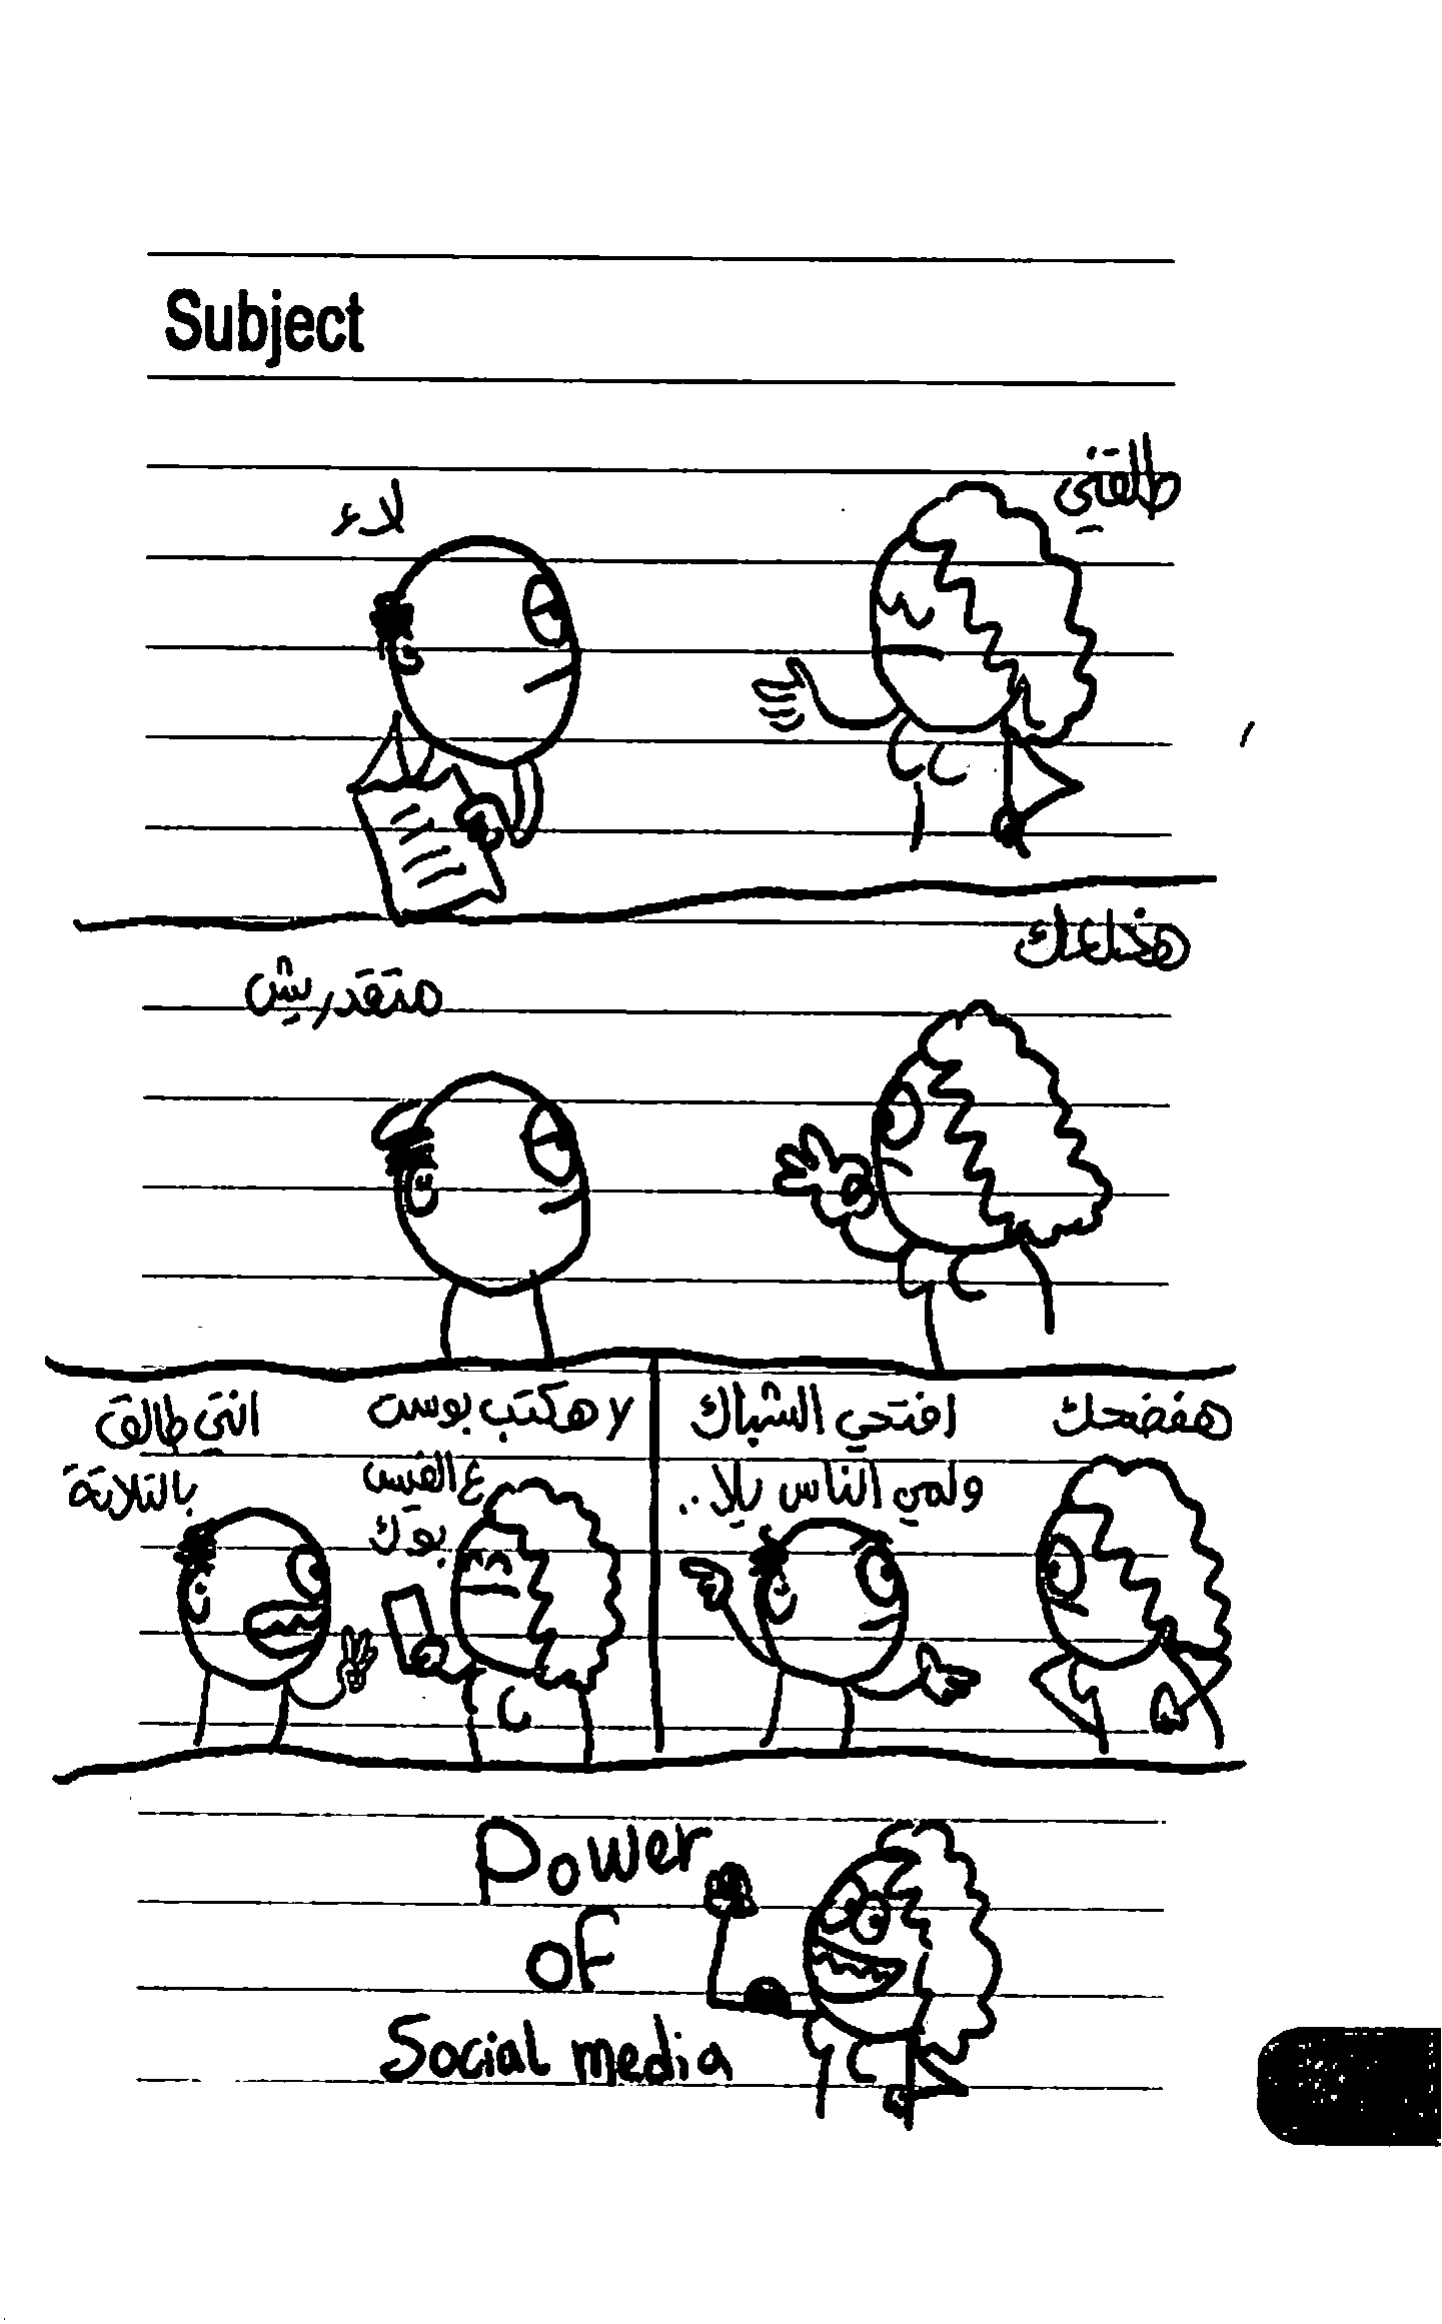 Subject
طلقني
لاء
هخلعك
متقدريش
هفضحك
افتحي الشباك
ولمي الناس يلا..
لا هكتب بوست
ع الفيس
بوك
انتي طالق
بالتلاتة
Power
of
Social media